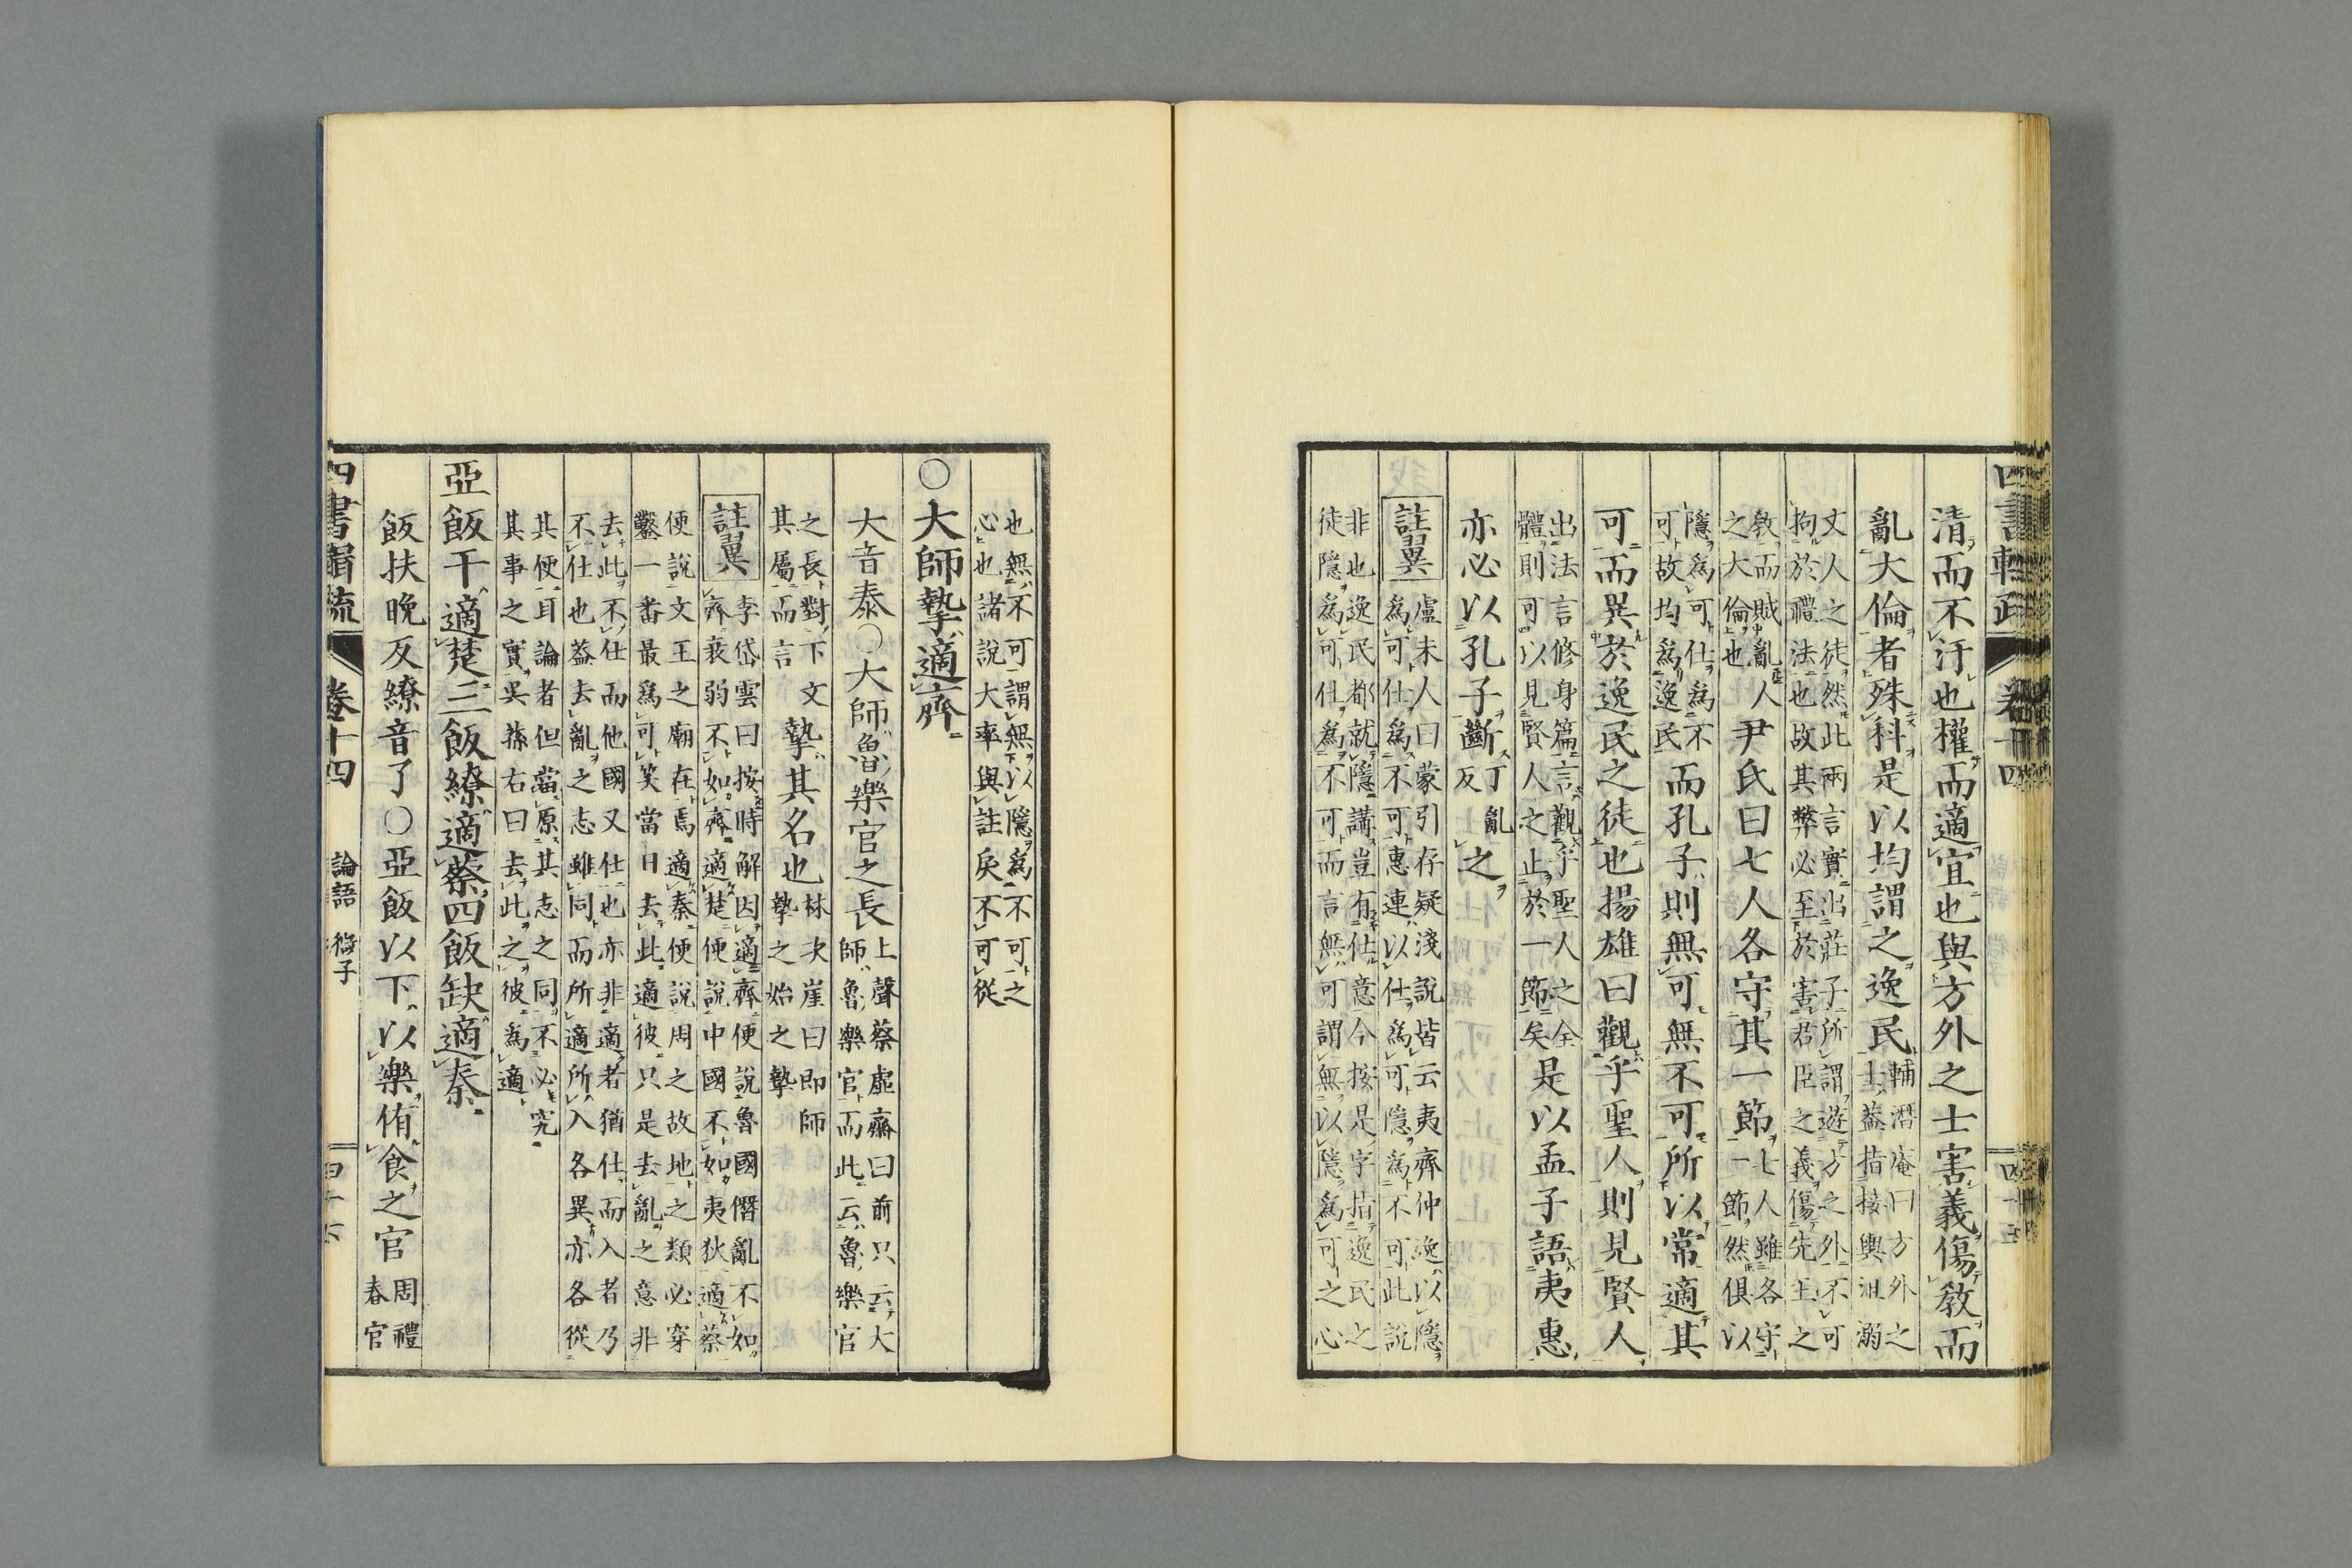 清而不汙也權而適宜也與方外之士害義傷教而
亂大倫者殊科是以均謂之逸民輔潛庵曰方外之士蓋指接輿沮溺
丈人之徒然此兩言實出莊子所謂遊方之外不可拘於禮法也故其弊必至於害君臣之義傷先王之
教而賊亂人之大倫也尹氏曰七人各守其一節七人雖各守一節然俱以
隱爲可仕爲不可故均爲逸民而孔子則無可無不可所以常適其
可而異於逸民之徒也揚雄曰觀乎聖人則見賢人
出法言修身篇言觀乎聖人之全體則可以見賢人之止於一節矣是以孟子語夷惠
亦必以孔子斷丁亂反之
註翼盧未人曰蒙引存疑淺說皆云夷齊仲逸以隱爲可仕爲不可惠連以仕爲可隱爲不可此說
非也逸民都就隱講豈有仕意今按是字指逸民之徒隱爲可仕爲不可而言無可謂無以隱爲可之心
也無不可謂無以隱爲不可之心也諸說大率與註戾不可從
○大師摯適齊
大音泰○大師魯樂官之長上聲蔡虛齋曰前只云大師魯樂官而此云魯樂官
之長對下文其屬而言摯其名也林次崖曰即師摯之始之摯
註翼李岱雲曰按時解因適齊便說魯國僭亂不如齊衰弱不如齊適楚便說中國不如夷狄適蔡
便說文王之廟在焉適秦便說周之故地之類必穿鑿一番最爲可笑當日去此適彼只是去亂之意非
去此不仕而他國又仕也亦非適者猶仕而入者乃不仕也蓋去亂之志雖同而所適所入各異亦各從
其便耳論者但當原其志之同不必究其事之實吳蓀右曰去此之彼爲適
亞飯干適楚三飯繚適蔡四飯缺適秦
飯扶晚反繚音了○亞飯以下以樂侑食之官周禮春官
四書輯疏 卷十四 論語 微子 四十六